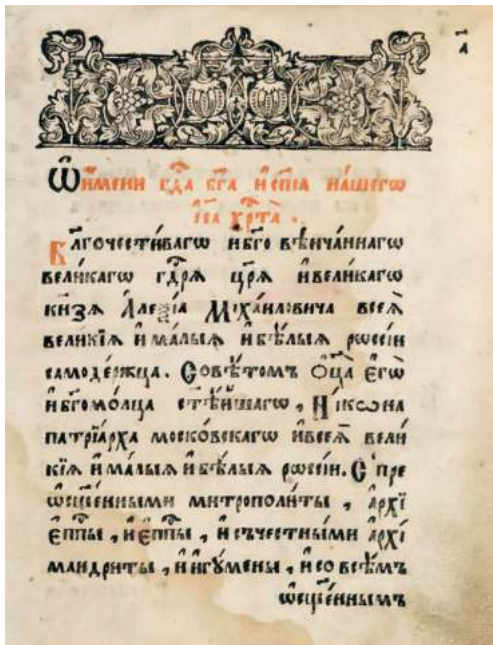 а҃
Ѽ и҆мени гд҇а бг҃а и҆ сп҃са на́шегѡ
і҆са хр҇та̀ .
Бл҃гочести́вагѡ и҆бг҃овѣнча́ннагѡ
вели́кагѡ гдⷭ҇рѧ цр҃ѧ и҆вели́кагѡ
кнѧ́зѧ Алеѯі́а Міха́иловича всеѧ̀
вели́кїѧ и҆ма́лыѧ и҆бѣ́лыѧ рѡссі́и
самоде́ржца. Совѣ́томъ Ѻц҃а̀ є҆гѡ̀
и҆бг҃омо́лца ст҃ѣ́йшагѡ , Ні́кѡна
патрїа́рха моско́вскагѡ и҆всеѧ̀ вели
кїѧ и҆ма́лыѧ и҆бѣ́лыѧ рѡссі́и. С᾿ пре
ѡ҆сщ҃е́нными митрополи́ты , а҆рхї
є҆пⷭ҇пы , и҆є҆пⷭ҇пы , и҆съче́стными а҆рхі
мандри́ты , и҆и҆гꙋ́мены , и҆со всѣ́мъ
ѡ҆сщ҃е́ннымъ